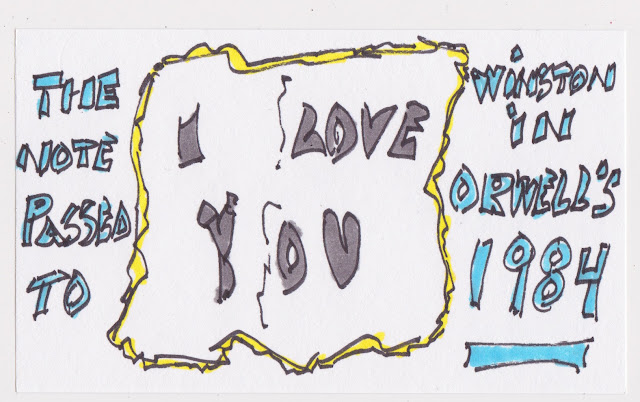 THE
NOTE
PASSED
TO
I LOVE
YOU
WINSTON
IN
ORWELL'S
1984